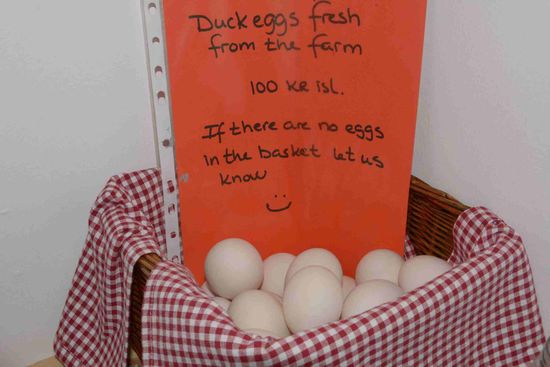 Duck eggs fresh
from the farm
100 KR isl.
If there are no eggs
in the basket let us
know